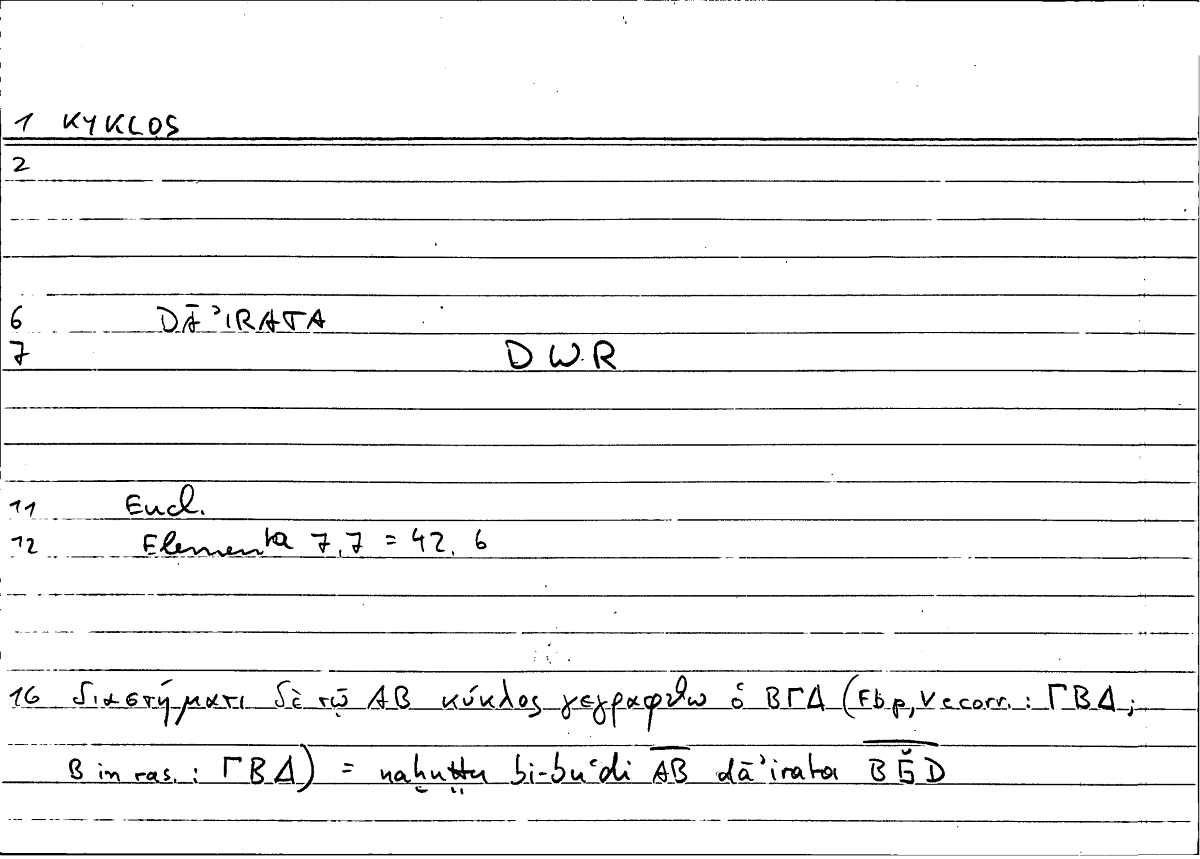 1 KYKLOS
2
6 DĀʾIRATA
7 DWR
11 Eucl.
12 Elementa 7,7 = 42,6
16 διαστήματι δὲ τῷ ΑΒ κύκλος γεγραφθω ὁ ΒΓΔ (Fbp, V e corr.: ΓΒΔ;
B in ras.: ΓΒΔ) = naḫuṭṭu bi-buʿdi A͞B dāʾirata B͞Ğ͞D